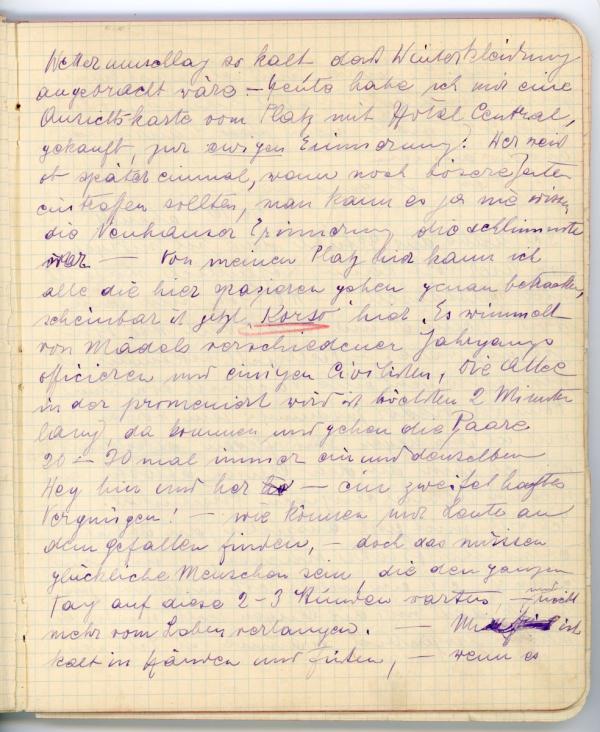 Wetterumschlag so kalt dass Winterkleidung
angebracht wäre – Heute habe ich mir eine
Ansichtskarte vom Platz mit Hotel Central,
gekauft, zur ewigen Erinnerung! Wer weis
ob später einmal, wenn noch bösere Zeiten
eintreffen sollten, man kann es ja nie wissen
die Neuhauser Erinnerung die schlimmste
war — Von meinen Platz hier kann ich
alle die hier spazieren gehen genau betrachten,
scheinbar ist jetzt „Korso" hier. Es wimmelt
von Mädels verschiedener Jahrgänge
officieren und einigen Civilisten, Die Allee
in der promeniert wird ist höchsten 2 Minuten
lang, da kommen und gehen die Paare
20 – 30 mal immer ein und denselben
Weg hin und her — ein zweifelhaftes
Vergnügen! – wie können nur Leute an
dem gefallen finden, – doch das müssen
glückliche Menschen sein, die den ganzen
Tag auf diese 2–3 Stunden warten, – und nicht
mehr vom Leben verlangen. — Mir ist
kalt in Händen und Füßen, – wenn es